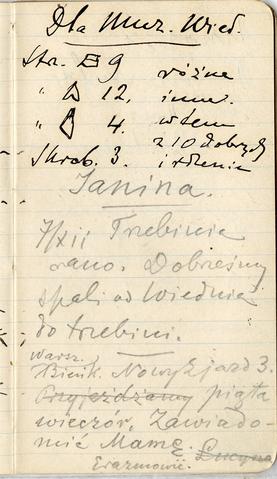 Dla Muz. Wied.
Sta. 9 różne
" 12. inne.
" 4. w tem
Skrob. 3. z 10 dobrych
i rdzenie
Janina.
7/XII Trzebinia
rano. Dobrześmy
spali od Wiednia
do Trzebini.
Warsz.
Bieik. Nowyzjazd 3.
Przyjeżdżamy piąta
wieczór. Zawiado-
mić Mamę. Lucyna
Erazmowie.